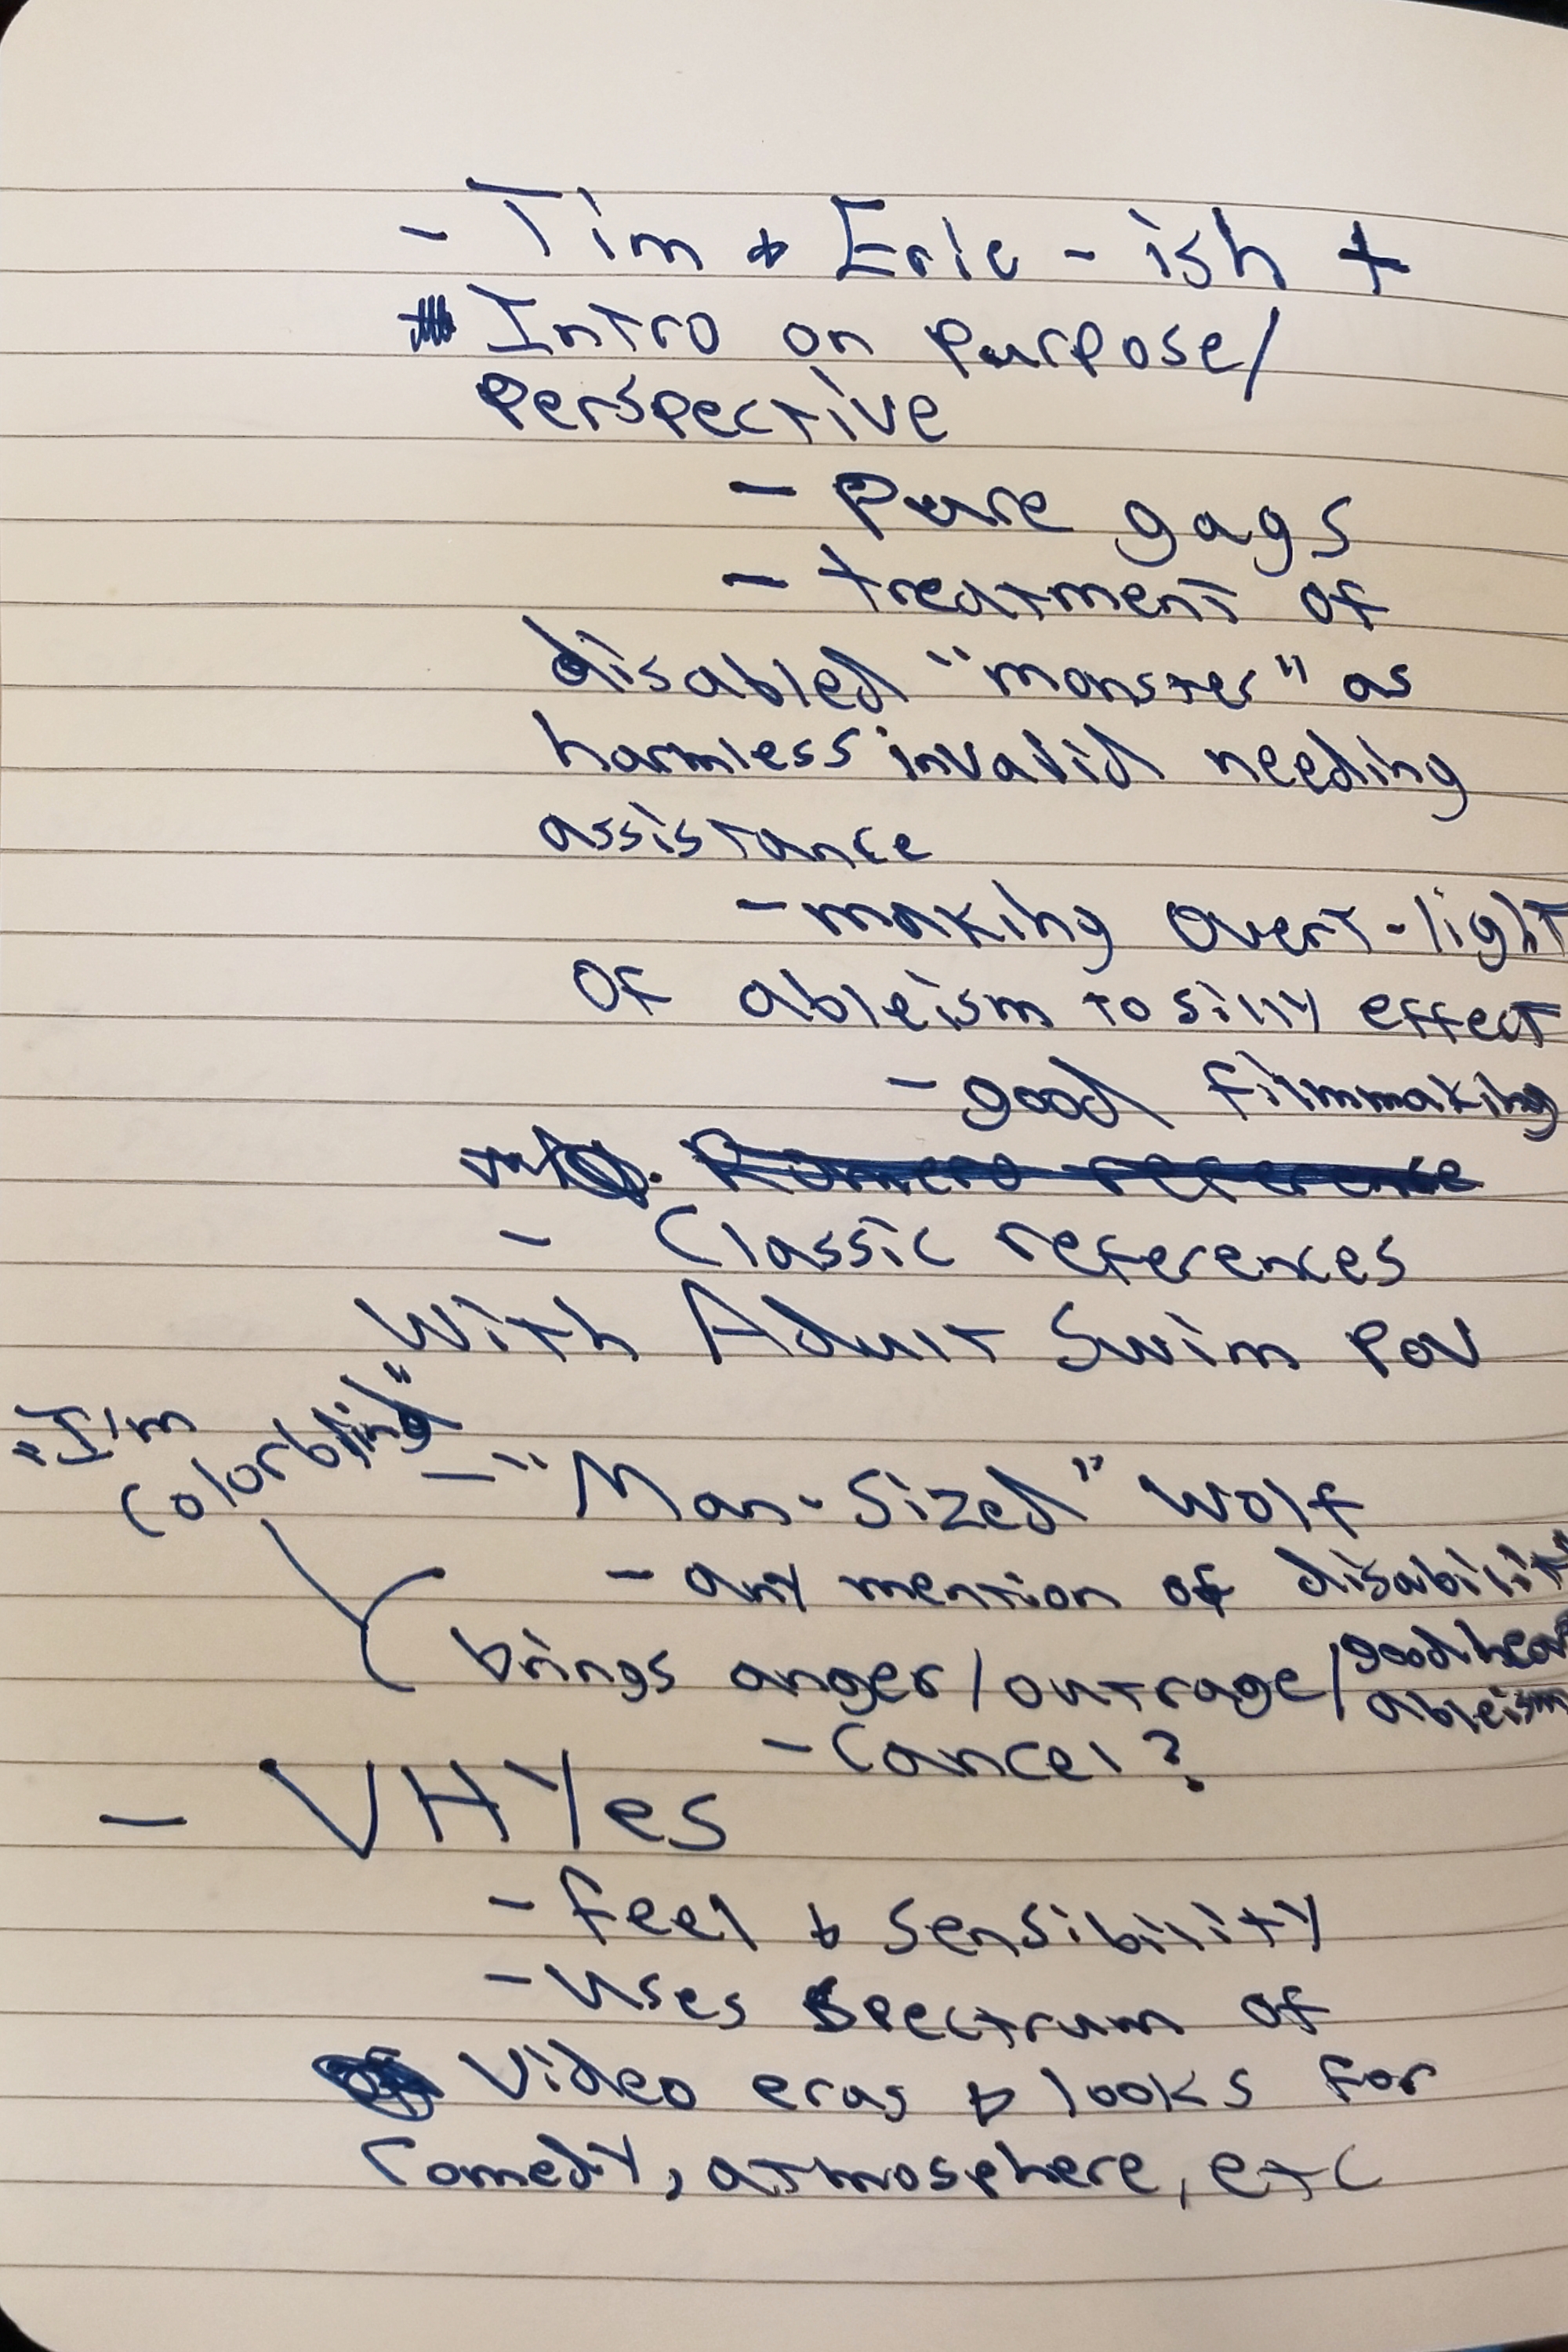 - Tim & Eric-ish +
Intro on purpose/
Perspective
- Pure gags
- treatment of
disabled "monster" as
harmless invalid needing
assistance
- making overt-light
of ableism to silly effect
- good filmmaking
Romero reference
- Classic references
With Adult Swim POV
"I'm
Colorblind"
- "Man-Sized" Wolf
- any mention of disabilit
brings anger/outrage/goodhear
ableism
- Cancel?
- VHYes
- feel & sensibility
- Uses Spectrum of
Video eras & looks for
Comedy, atmosphere, etc